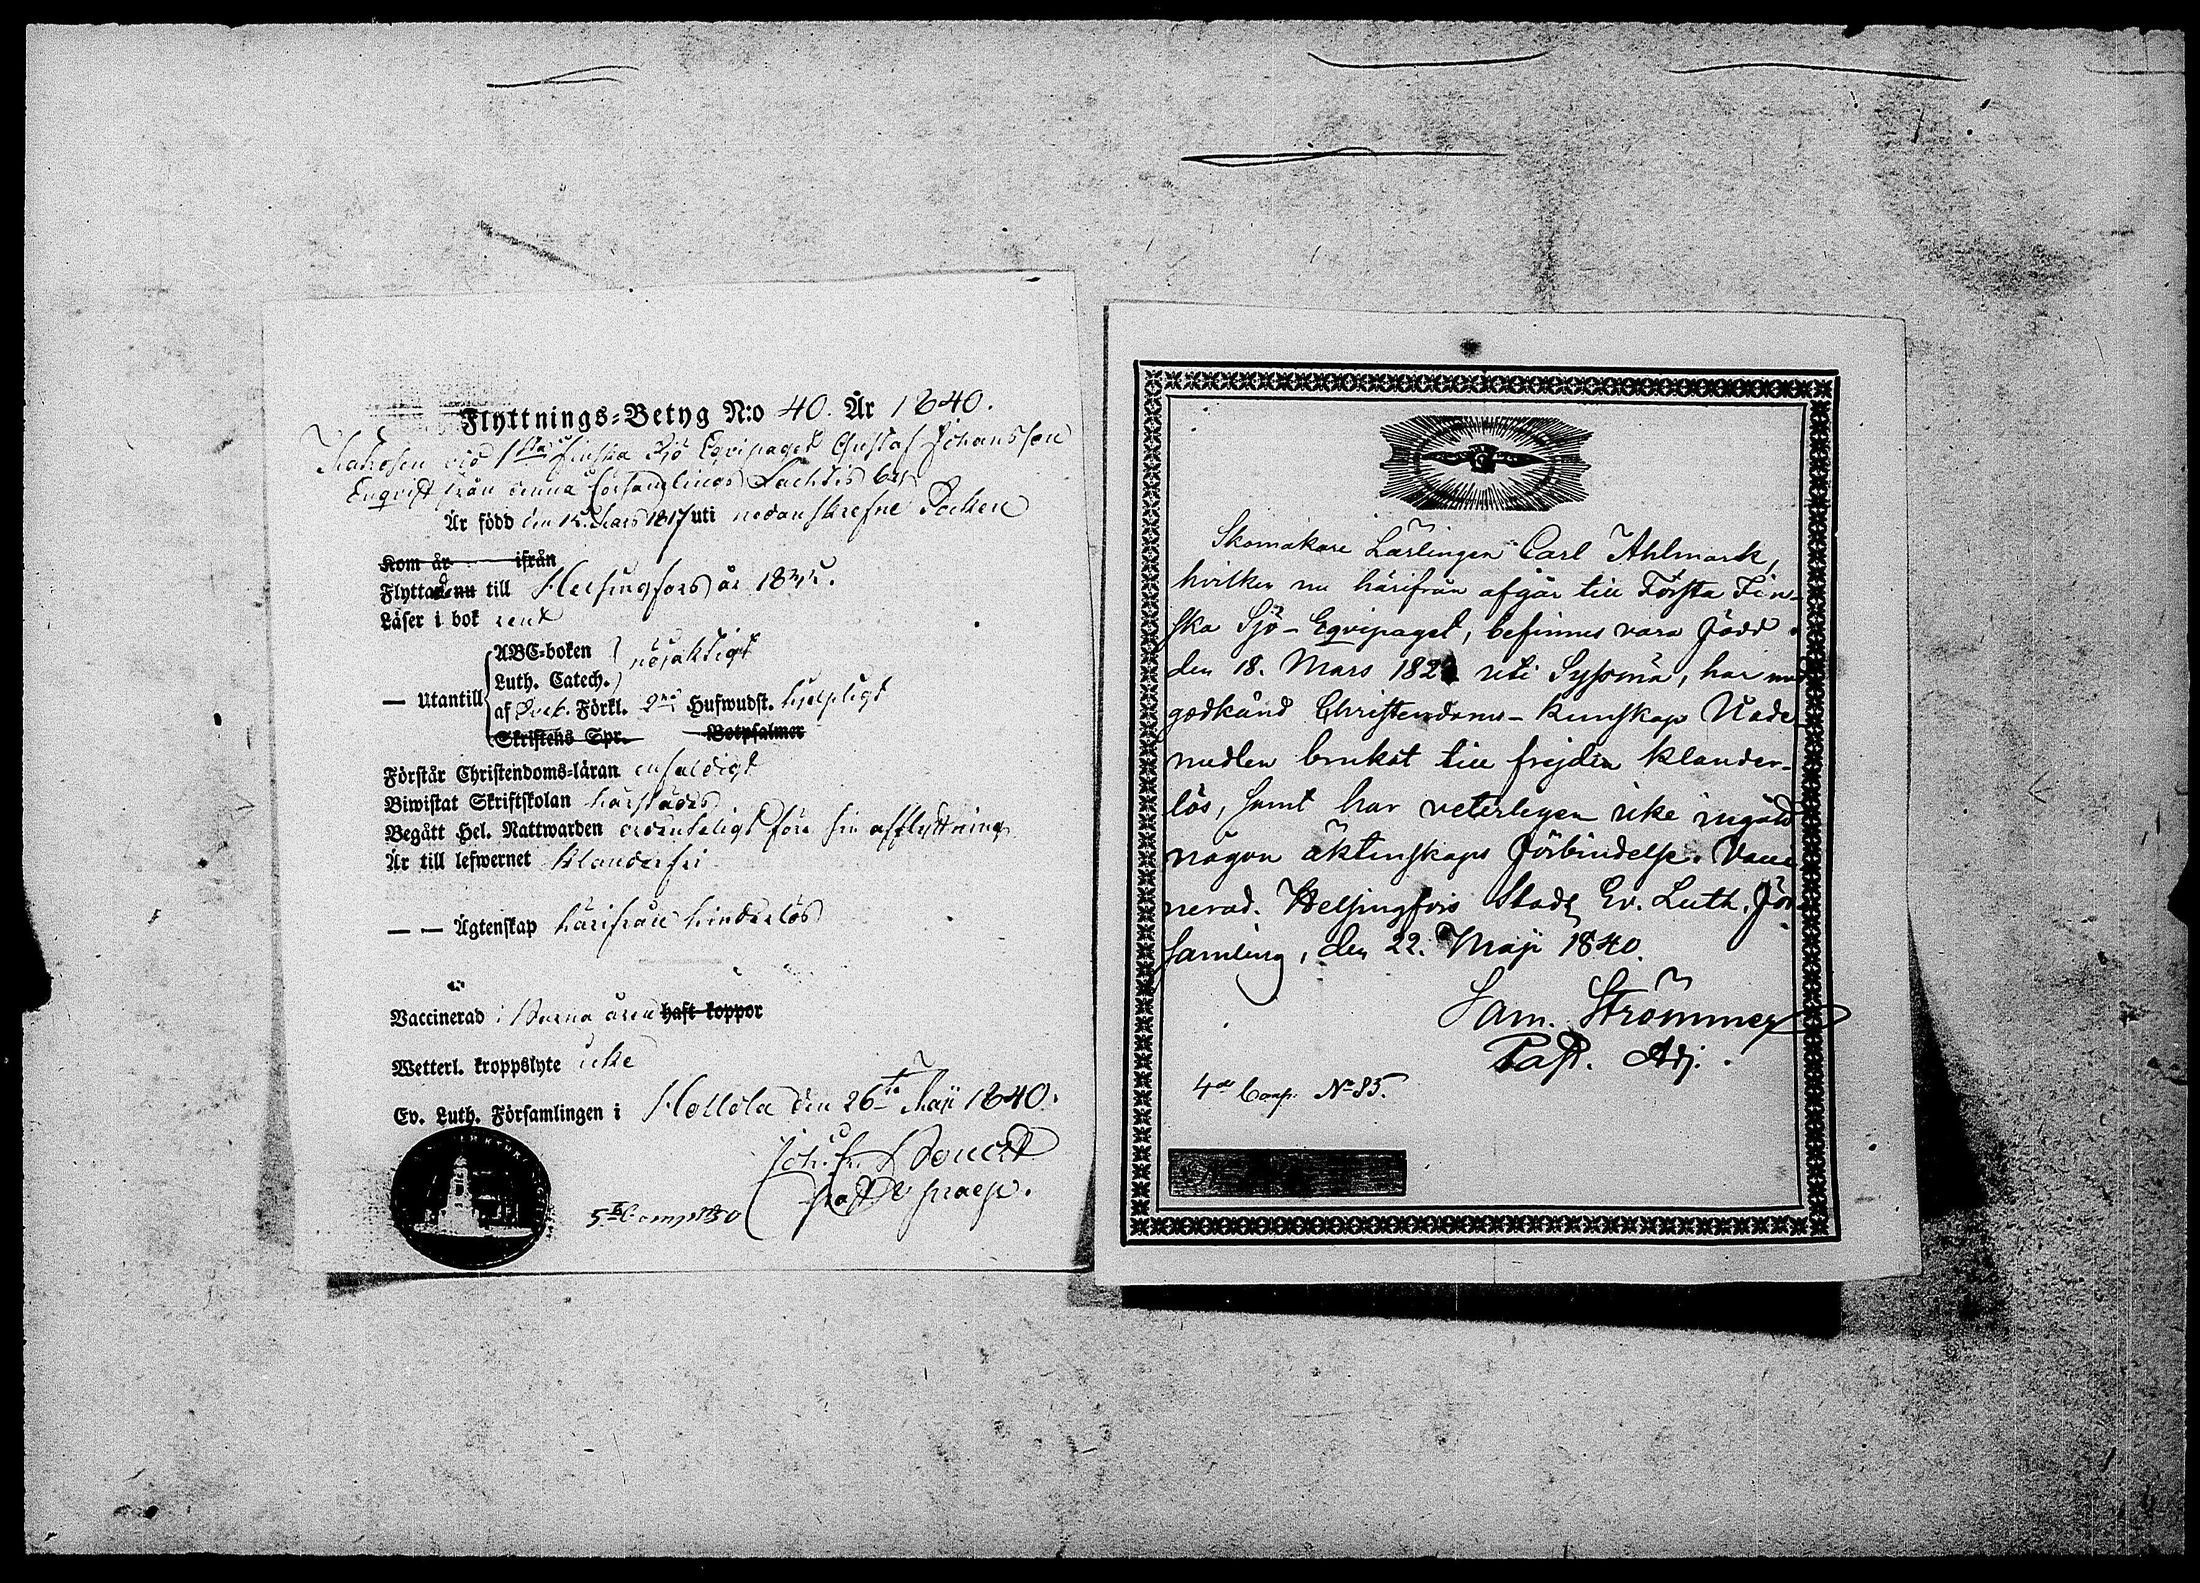 Flyttnings-Betyg N:o 40. År 1840.
Matrosen vid 1sta Finska Sjö Eqvipaget Gustaf Johansson
Enqvist från denna församlings Lachtis by
Är född den 15 Mars 1817 uti nedanskrefne Socken
Kom år ifrån
Flyttade till Helsingfors år
Läser i bok rent
ABC-boken
Luth. Catech. nöjaktigt
— Utantill
af Sveb. Förkl. 2ne Hufwudst. hjelpligt
Skriftens Spr. Botpsalmer
Förstår Christendoms-läran enfaldigt
Biwistat Skriftskolan härstädes
Begått Hel. Nattwarden ordenteligt före sin afflyttning
Är till lefwernet klanderfri
— — Ägtenskap härifrån hinderlös
Vaccinerad i barna åren haft koppor
Wetterl. kroppslyte icke
Ev. Luth. Församlingen i Hollola den 26te Maji 1840.
Joh. Fr.
Past. & praep.
5te Comp. No 30
Skomakare Lärlingen Carl Ahlmark,
hvilken nu härifrån afgår till Första Fin-
ska Sjö-Eqvipaget, befinnes vara född
den 18. Mars 182 uti Syssmä, har med
godkänd Christendoms-kunskap Nade-
medlen brukat till frejden klander-
lös, samt har veterligen icke ingått
någon äktenskaps förbindelse. Vacci-
nerad. Helsingfors Stads Ev. Luth. För-
samling, den 22. Maji 1840.
Sam. Strömmer
Past. Adj.
4de Comp. No 85.